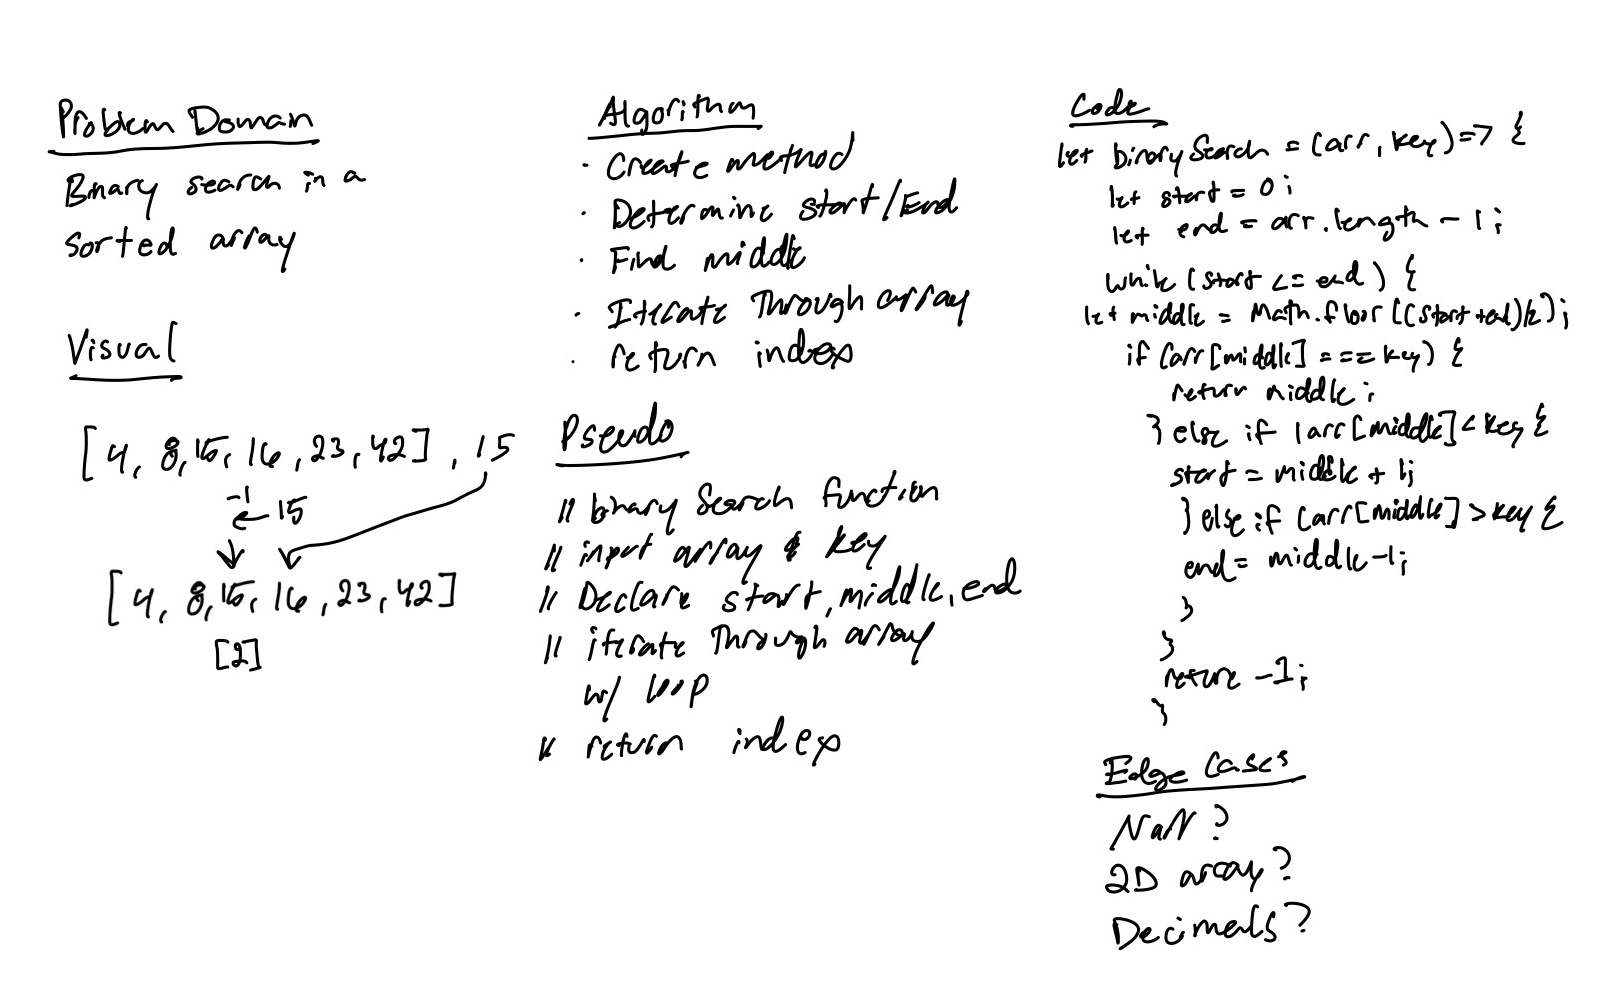 Problem Domain
Binary search in a
sorted array
Visual
[4, 8, 15, 16, 23, 42], 15
-1
← 15
[4, 8, 15, 16, 23, 42]
[2]
Algorithm
· Create method
· Determine start/End
· Find middle
· Iterate Through array
· return index
Pseudo
// binary Search function
// input array & key
// Declare start, middle, end
// iterate Through array
w/ loop
// return index
Code
let binarySearch = (arr, key) => {
let start = 0;
let end = arr.length - 1;
while (start <= end) {
let middle = Math.floor((start+end)/2);
if (arr[middle] === key) {
return middle;
} else if (arr[middle] < key {
start = middle + 1;
} else if (arr[middle] > key {
end = middle-1;
}
}
return -1;
}
Edge Cases
NaN?
2D array?
Decimals?